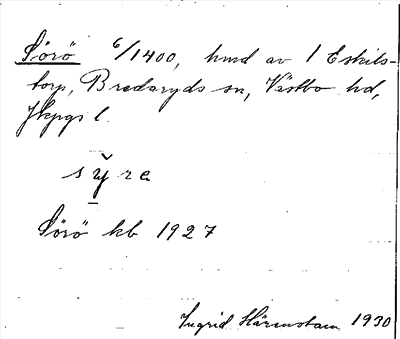 Sörö 6/1400, hmd av 1 Eskils-
torp, Bredaryds sn, Västbo hd,
Jkpgs l.
sy̌re
Sörö kb 1927
Ingrid Härenstam 1930